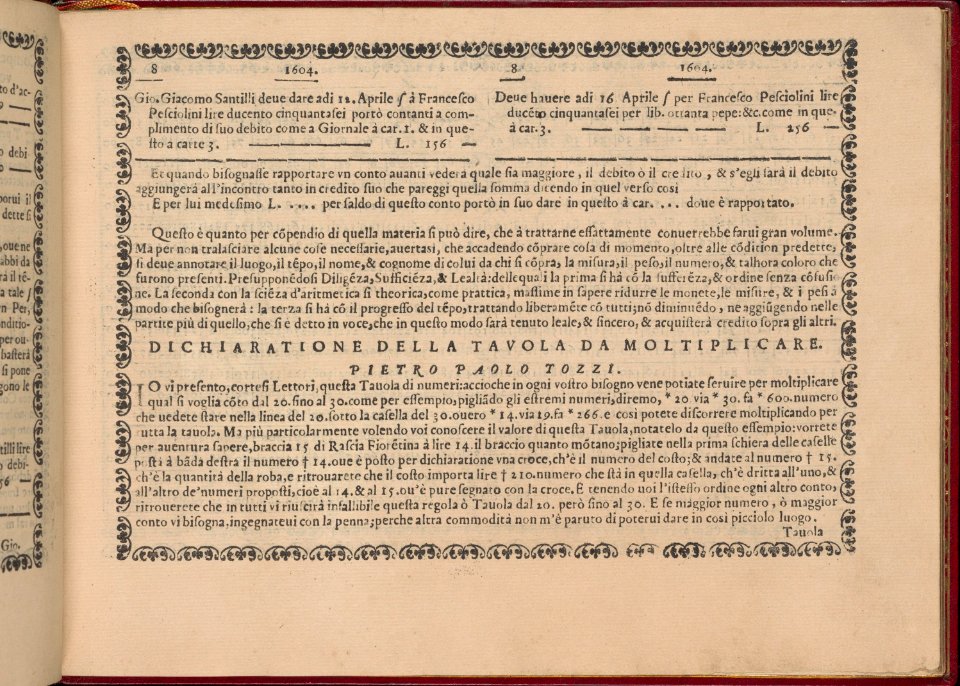 to d'ac-
9
o debi
0
porui il
dette si
,oue ne
abbi da
rà il tē-
a tale ſ
n Per,
nditio-
per ou-
basterà
si pone
gono le
tilli lire
o debi-
56
Gio.
8 1604.
Gio. Giacomo Santilli deue dare adi 12. Aprile ſ à Francesco
Pesciolini lire ducento cinquantasei portò contanti a com-
plimento di suo debito come a Giornale à car. 1. & in que-
sto a carte 3. L. 156
8 1604.
Deue hauere adi 16 Aprile ſ per Francesco Pesciolini lire
ducēto cinquantasei per lib. ottanta pepe: &c. come in que.
à car. 3. L. 256
Et quando bisognasse rapportare vn conto auanti vederà quale sia maggiore, il debito ò il credito, & s'egli sarà il debito
aggiungerà all'incontro tanto in credito suo che pareggi quella somma dicendo in quel verso così
E per lui medesimo L. .... per saldo di questo conto portò in suo dare in questo à car. ... doue è rapportato.
Questo è quanto per cōpendio di quella materia si può dire, che à trattarne essattamente conuerrebbe farui gran volume.
Ma per non tralasciare alcune cose necessarie, auertasi, che accadendo cōprare cosa di momento, oltre alle cōdition predette,
si deue annotare il luogo, il tēpo, il nome, & cognome di colui da chi si cōpra, la misura, il peso, il numero, & talhora coloro che
furono presenti. Presupponēdosi Diligēza, Sufficiēza, & Lealtà: delle quali la prima si hà cō la sufferēza, & ordine senza cōfusio
ne. La seconda con la sciēza d'aritmetica si theorica, come prattica, massime in sapere ridurre le monete, le misure, & i pesi à
modo che bisognerà: la terza si hà cō il progresso del tēpo, trattando liberamēte cō tutti; nō diminuēdo, ne aggiūgendo nelle
partite più di quello, che si è detto in voce, che in questo modo sarà tenuto leale, & sincero, & acquisterà credito sopra gli altri.
DICHIARATIONE DELLA TAVOLA DA MOLTIPLICARE.
PIETRO PAOLO TOZZI.
IO vi presento, cortesi Lettori, questa Tauola di numeri: accioche in ogni vostro bisogno vene potiate seruire per moltiplicare
qual si voglia cōto dal 20. sino al 30. come per essempio; pigliādo gli estremi numeri, diremo, * 20 via * 30. fa * 600. numero
che uedete stare nella linea del 20. sotto la casella del 30. ouero * 14. via 19. fa * 266. e così potete discorrere moltiplicando per
tutta la tauola. Ma più particolarmente volendo voi conoscere il valore di questa Tauola, notatelo da questo essempio: vorrete
per auentura sapere, braccia 15 di Rascia Fiorētina à lire 14. il braccio quanto mōtano; pigliate nella prima schiera delle caselle
posti à bāda destra il numero † 14. oue è posto per dichiaratione vna croce, ch'è il numero del costo; & andate al numero † 15.
ch'è la quantità della roba, e ritrouarete che il costo importa lire † 210. numero che stà in quella casella, ch'è dritta all'uno, &
all'altro de'numeri proposti, cioè al 14. & al 15. ou'è pure segnato con la croce. E tenendo uoi l'istesso ordine ogni altro conto,
ritrouerete che in tutti vi riuscirà infallibile questa regola ò Tauola dal 20. però sino al 30. E se maggior numero, ò maggior
conto vi bisogna, ingegnateui con la penna; perche altra commodità non m'è paruto di poterui dare in così picciolo luogo.
Tauola